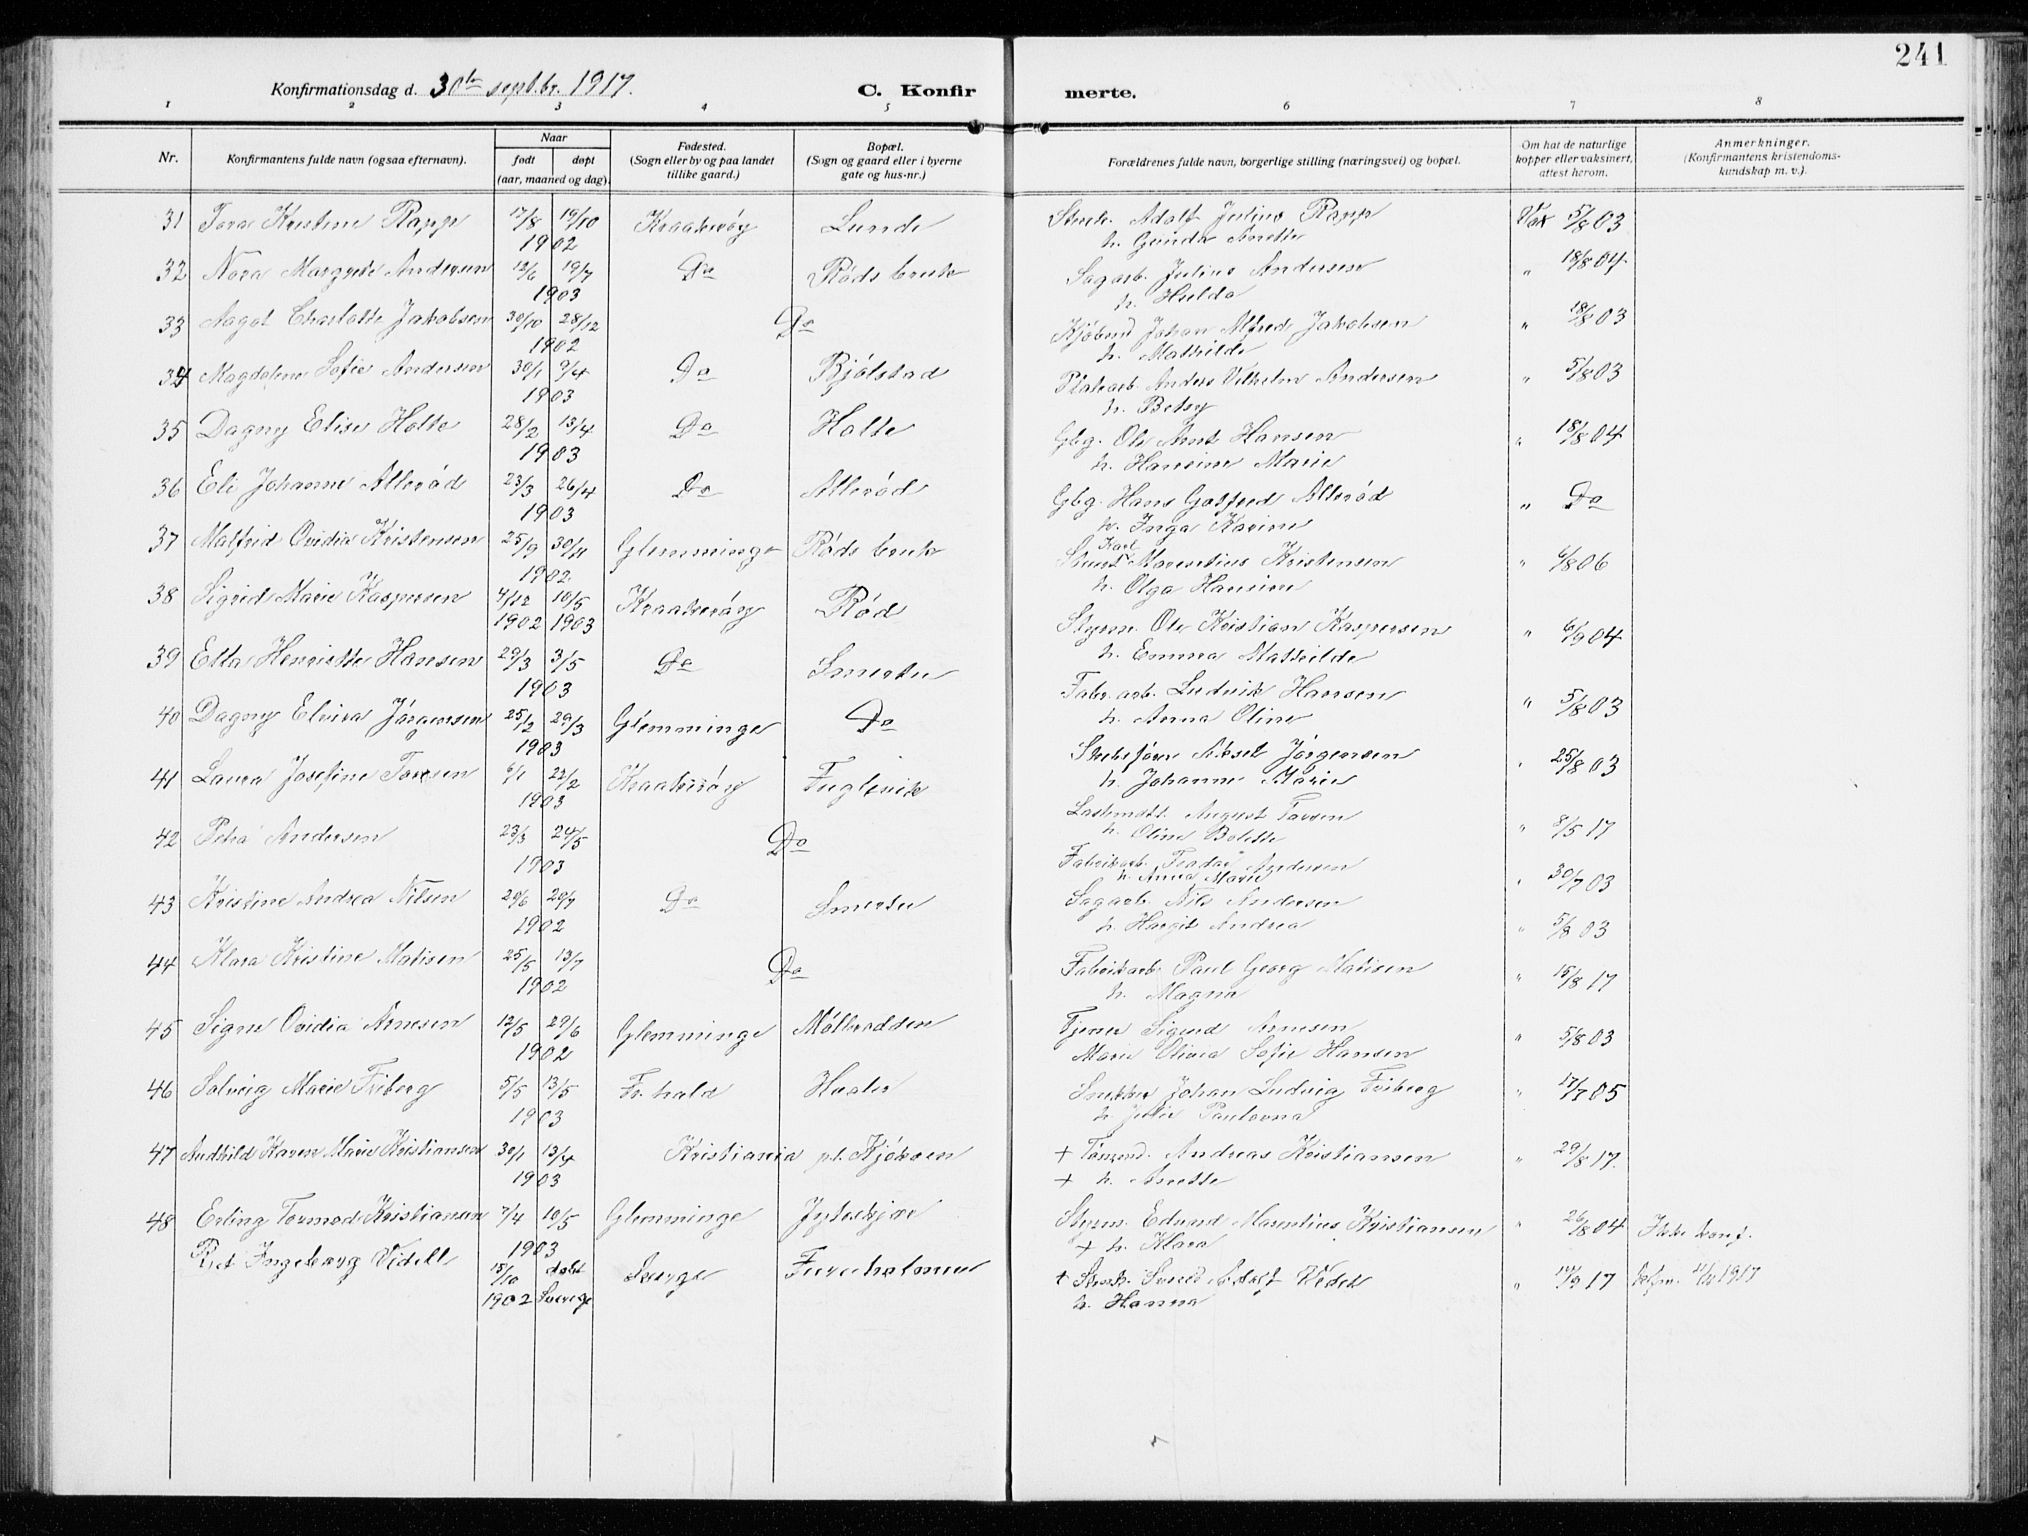 241
Konfirmationsdag d. 30te septbr. 1917.
C. Konfir merte.
1 2 3 4 5 6 7 8
Nr. Konfirmantens fulde navn (ogsaa efternavn). Naar født døpt (aar, maaned og dag). Fødested. (Sogn eller by og paa landet tillike gaard.) Bopæl. (Sogn og gaard eller i byerne gate og hus-nr.) Forældrenes fulde navn, borgerlige stilling (næringsvei) og bopæl. Om hat de naturlige kopper eller vaksinert, attest herom. Anmerkninger. (Konfirmantens kristendoms- kundskap m. v.).
31 Tora Kristine Rapp 17/8 19/10 Kraakerøy Lunde Adolf Julius Rapp Vax 5/8 03
1902 h. Gunda Anette
32 Nora Margrete Andersen 12/6 19/7 Do Røds bruk Sagarb. Julius Andersen " 18/8 04
1903 h. Hulda
33 Aagot Charlotte Jakobsen 30/10 28/12 Do Kjøbmd Johan Alfred Jakobsen " 18/8 03
1902 h. Mathilde
34 Magdalene Sofie Andersen 30/1 9/4 Do Bjølstad Anders Vilhelm Andersen " 5/8 03
1903 h. Betsy
35 Dagny Elise Holte 28/2 13/4 Do Holte Gbg. Ole Amt Hansen " 18/8 04
1903 h. Hansine Marie
36 Eli Johanne Allerød 23/3 26/4 Do Allerød Gbg. Hans Gotfred Allerød " Do
1903 h. Inga Karine
37 Malfrid Ovidia Kristensen 25/9 30/11 Glemminge Røds bruk Karl Marentius Kristensen " 6/8 06
1902 h. Olga Hansine
38 Sigrid Marie Kaspersen 4/12 10/5 Kraakerøy Rød Styrm. Ole Kristian Kaspersen " 6/9 04
1902 1903 h. Emma Mathilde
39 Etta Henriette Hansen 29/3 3/5 Do Smertu Fabr. arb. Ludvik Hansen " 5/8 03
1903 h. Anna Oline
40 Dagny Elvira Jørgensen 25/2 29/3 Glemminge Do Aksel Jørgensen " 25/8 03
1903 h. Johanne Marie
41 Laura Josefine Torsen 6/1 22/2 Kraakerøy Fuglevik August Torsen " 8/5 17
1903 h. Oline Bolette
42 Petra Andersen 23/3 24/5 Do Fabrikarb. Teodor Andersen " 30/7 03
1903 h. Anna Marie
43 Kristine Andrea Nilsen 29/6 29/7 Do Smertu Sagarb. Nils Andersen " 5/8 03
1902 h. Hargit Andrea
44 Klara Kristine Matisen 25/5 13/7 Do Fabrikarb. Paul Georg Matisen " 15/8 17
1902 h. Magna
45 Signe Ovidia Arnesen 12/5 29/6 Glemminge Mølkrodden Tjener Sigurd Arnesen " 5/8 03
1902 Marie Olivia Sofie Hansen
46 Solveig Marie Friberg 5/5 13/5 Fr. hald Hasle Snekker Johan Ludvig Friberg " 17/7 05
1903 h. Julie Paulovna
47 Audhild Karen Marie Kristiansen 30/1 13/4 Kristiania pl. Kjøkøen + Tømmd. Andreas Kristiansen " 29/8 17.
1903 + h. Anette
48 Erling Tormod Kristiansen 7/4 10/5 Glemminge Jyteskjær Styrm. Edvard Marentius Kristiansen " 26/8 04 Ikke konf.
1903 + h. Klara
Rut Ingeborg Videll 15/10 døbt Sverge Furuholmen + Svend Adolf Videll " 14/9 17 1917
1902 Sverge h. Hanna